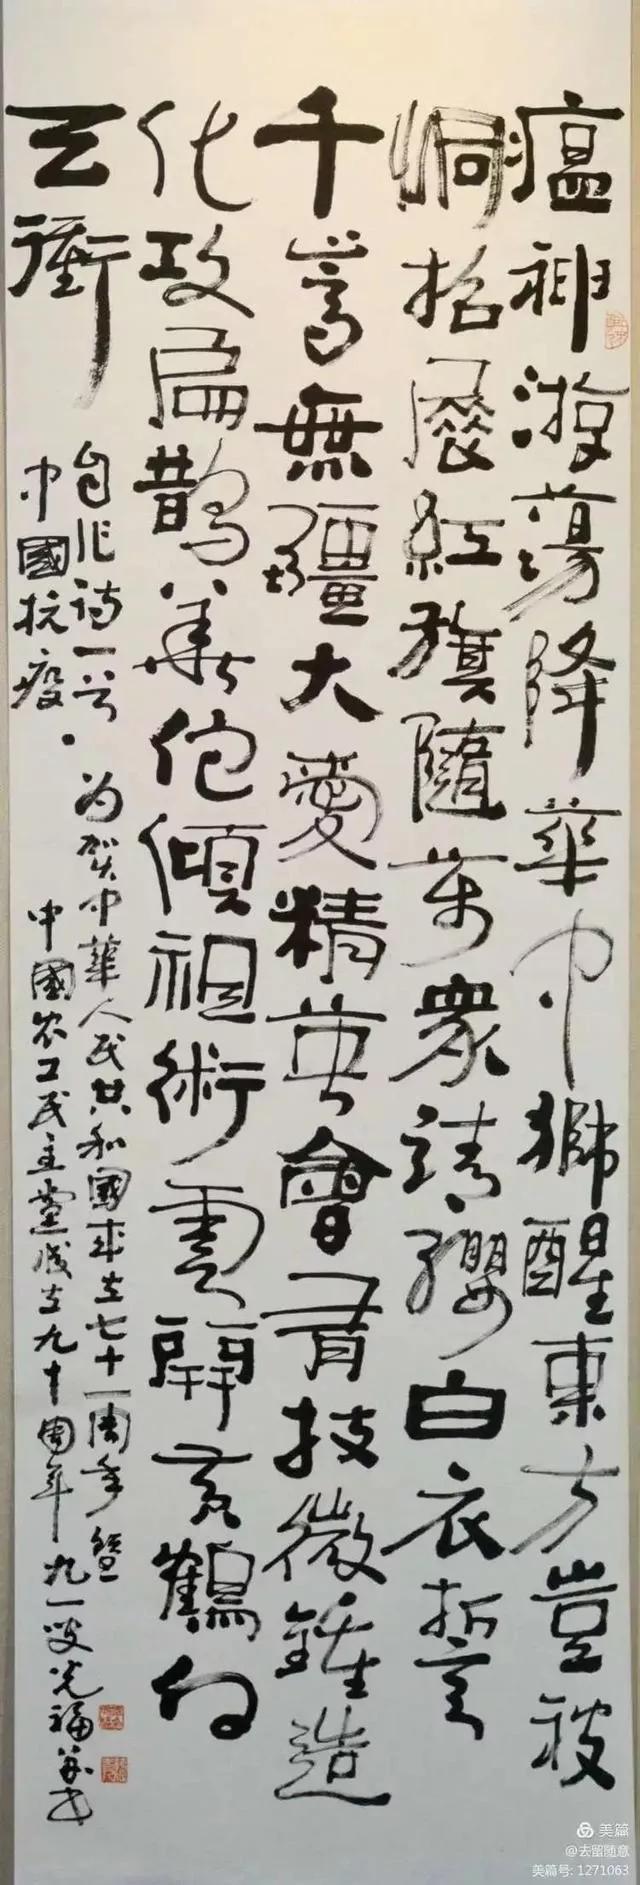 瘟神游蕩降華中獅醒東方豈被
恫招展紅旗隨萬眾請纓白衣誓
千嵩無疆大愛精英會有技微鍾造
化攻扁鵲華佗傾祖術重辭黃鶴向
云衝
自作诗一首
中國抗疫·为贺中華人民共和國成立七十一周年暨
中國农工民主黨成立九十周年 九一叟光福并书
美篇
@去留随意
美篇号: 1271063